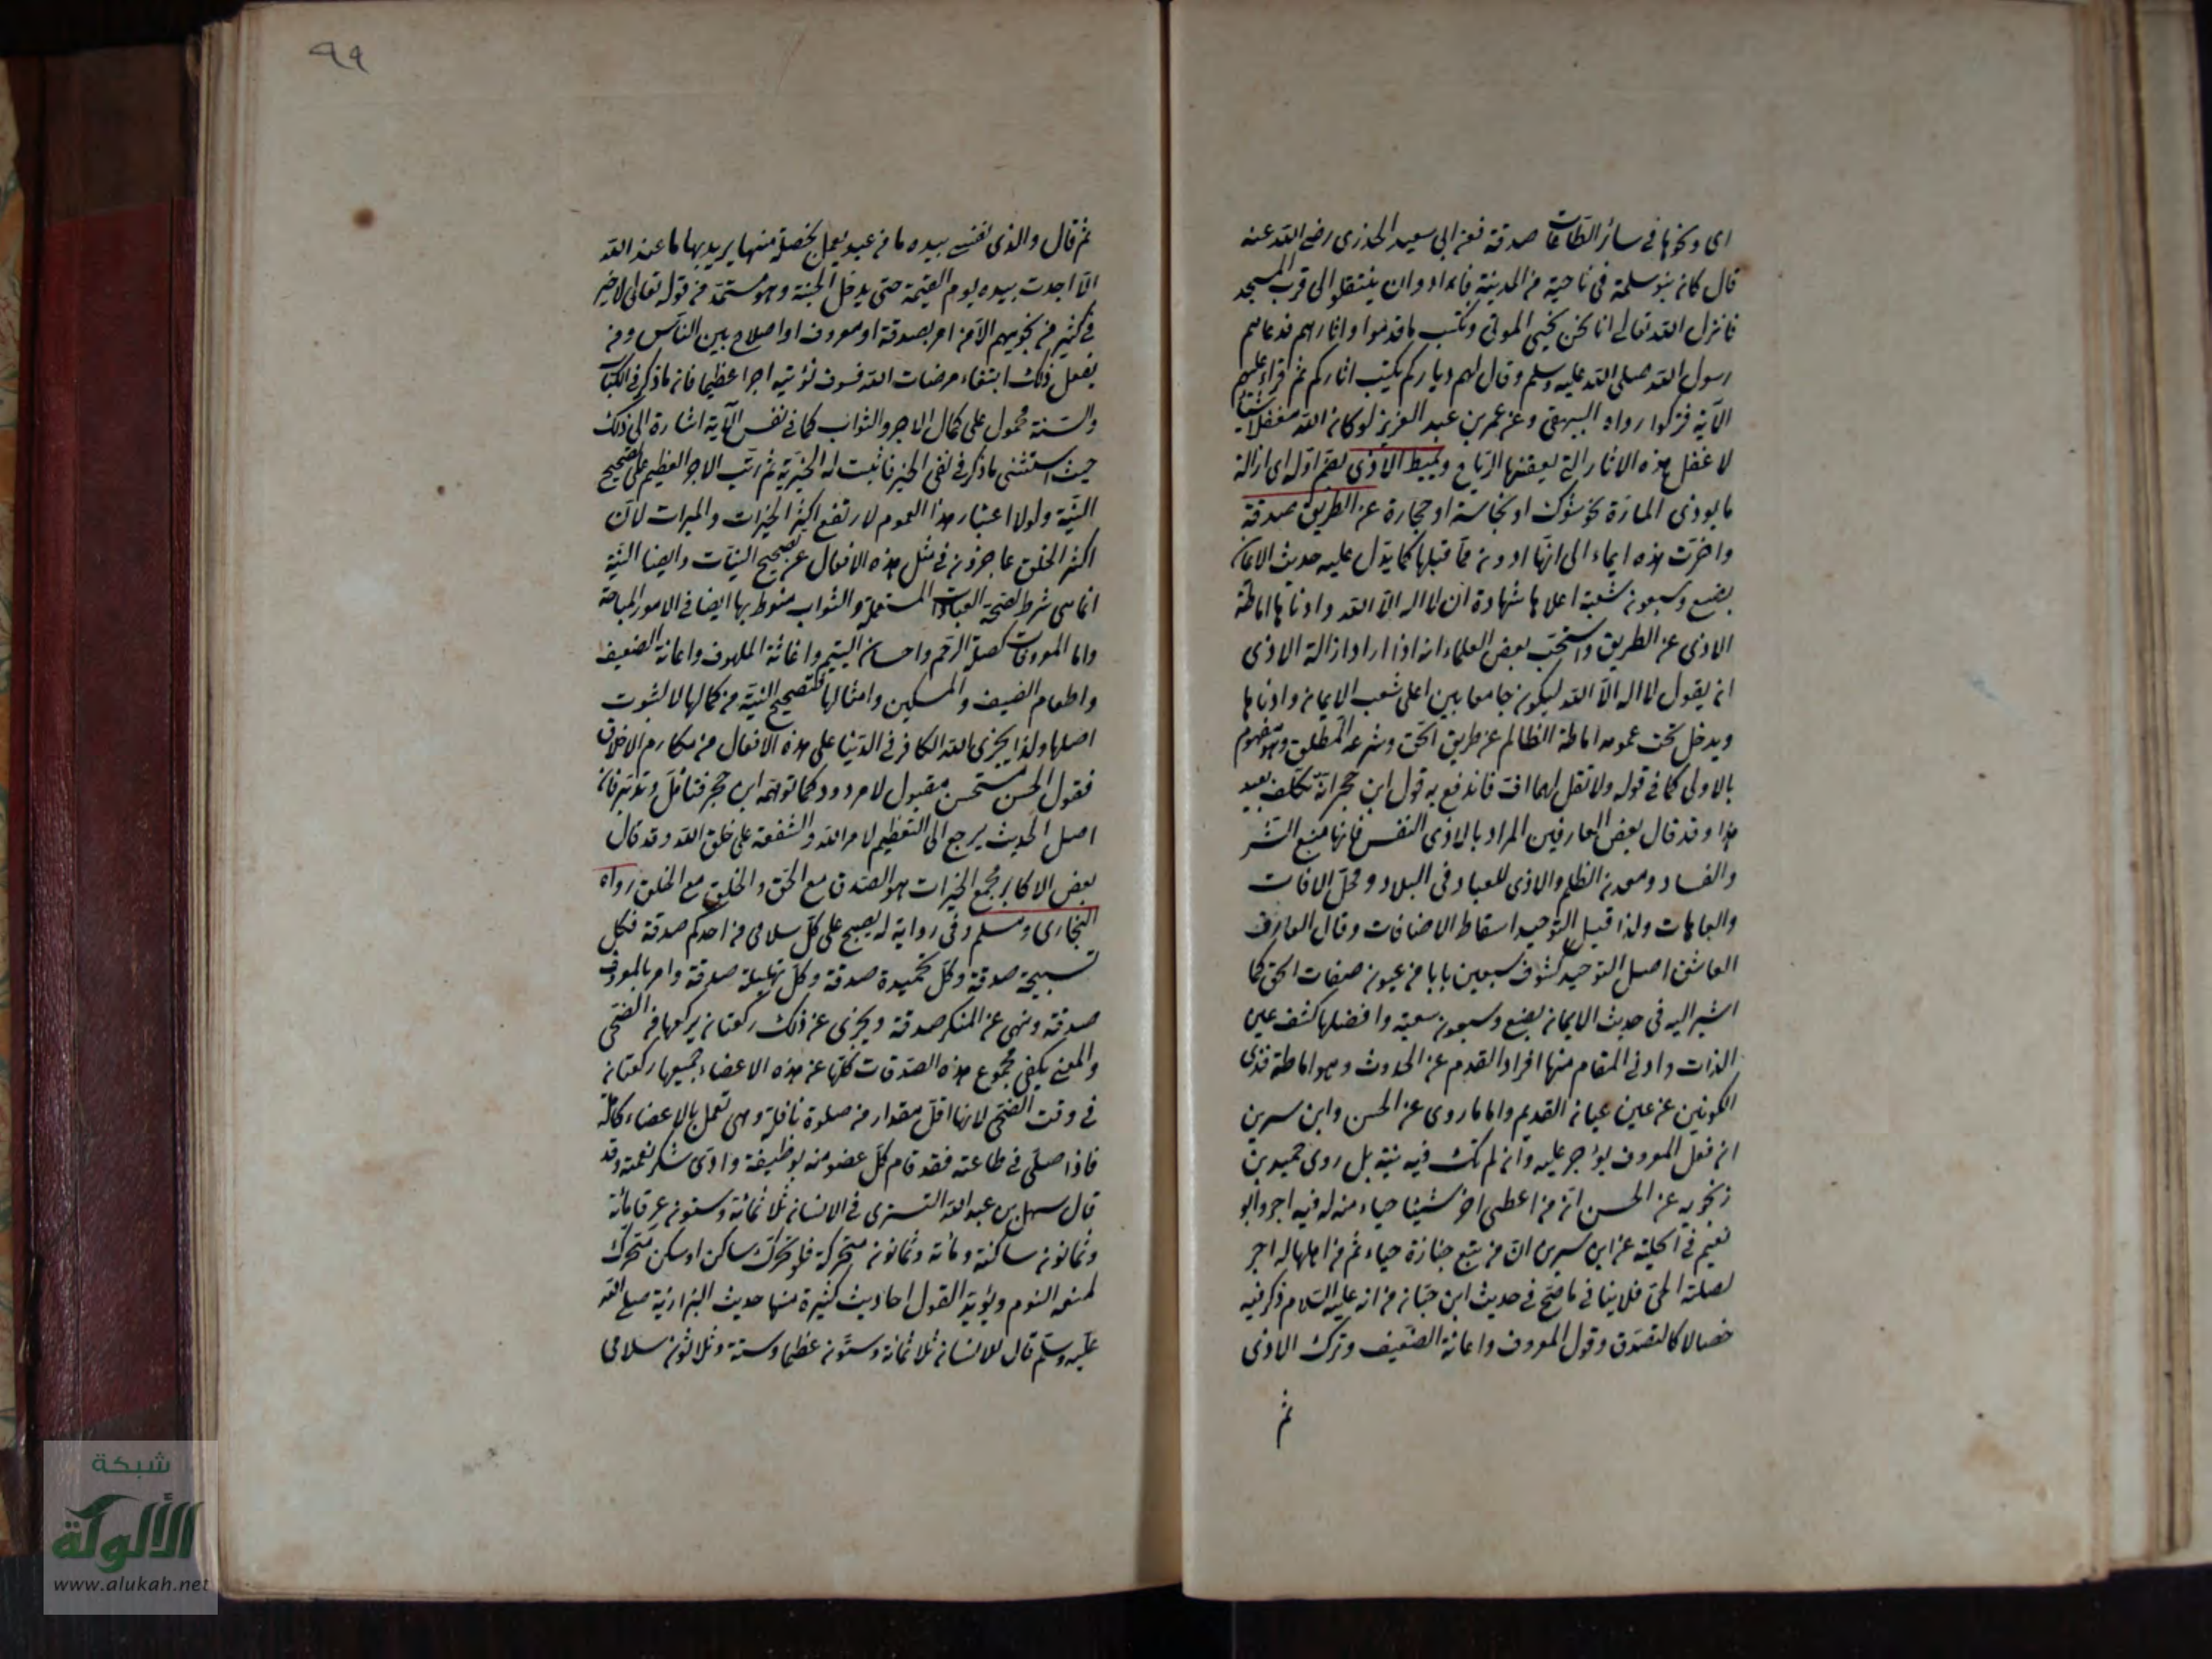 اى ونحوها فى سائر الطاعات صدقة فعن ابى سعيد الخدرى رضى الله عنه
قال كان بنو سلمة فى ناحية من المدينة فارادوا ان ينتقلوا الى قرب المسجد
فانزل الله تعالى انا نحن نحيى الموتى ونكتب ما قدموا واثارهم فدعاهم
رسول الله صلى الله عليه وسلم وقال لهم دياركم يكتب اثاركم ثم قراء عليهم
الآية فتركوا رواه البيهقى وعن عمر بن عبد العزيز لو كان الله مغفلا شيئا
لاغفل هذه الاثار التى يعقبها الرياح ويميط الأذى بضم اوله اى ازالة
ما يوذى المارة نحو شوك او نجاسة او حجارة عن الطريق صدقة
واخرت هذه ايماء الى انها ادون مما قبلها كما يدل عليه حديث الايمان
بضع وسبعون شعبة اعلاها شهادة ان لا اله الا الله وادناها اماطة
الاذى عن الطريق واستحب بعض العلماء انه اذا اراد ازالة الاذى
ان يقول لا اله الا الله ليكون جامعا بين اعلى شعب الايمان وادناها
ويدخل تحت عمومه اماطة المظالم عن طريق الحق وشرعه المطلق وهو مفهوم
بالاولى كما فى قوله ولا تقل لهما اف فاندفع به قول ابن حجر انه تكلف بعيد
هذا وقد قال بعض العارفين المراد بالاذى النفس فانها منبع الشر
والفساد ومعدن الظلم والاذى للعباد فى البلاد ومحل الافات
والعاهات ولذا قيل التوحيد اسقاط الاضافات وقال العارف
العاشق اصل التوحيد كشوف سبعين بابا من عيون صفات الحق كما
اشير اليه فى حديث الايمان بضع وسبعون شعبة وافضلها كشف عين
الذات وادنى المقام منها افراد القدم عن الحدوث وهو اماطة قذى
الكونين عن عين عيان القديم واما ما روى عن الحسن وابن سيرين
ان فعل المعروف يؤجر عليه وان لم تك فيه نية بل روى حميد بن
زنجويه عن الحسن انه من اعطى اخر شيئا حياء منه له فيه اجر وابو
نعيم فى الحلية عن ابن سيرين ان من تبع جنازة حياء ثم من اهلها له اجر
لصلته الحى فلا ينافى ما صح فى حديث ابن حبان من انه عليه السلام ذكر فيه
خصالا كالتصدق وقول المعروف واعانة الضعيف وترك الاذى
ثم
٩٩
ثم قال والذى نفسى بيده ما من عبد يعمل بخصلة منها يريد بها ما عند الله
الا اخذت بيده يوم القيمة حتى يدخل الجنة وهو مستمد من قوله تعالى لا خير
فى كثير من نجويهم الا من امر بصدقة او معروف او اصلاح بين الناس ومن
يفعل ذلك ابتغاء مرضات الله فسوف نؤتيه اجرا عظيما فان ما ذكر فى الكتاب
والسنة محمول على كمال الاجر والثواب كما فى نفس الآية اشارة الى ذلك
حيث استثنى ما ذكر فى نفى الخير فاثبت له الخيرية ثم رتب الاجر العظيم على تصحيح
النية ولولا اعتبار هذا العموم لارتفع اكثر الخيرات والمبرات لان
اكثر الخلق عاجزون فى مثل هذه الافعال عن تصحيح النيات وايضا النية
انما هى شرط لصحة العبادات المستعملة والثواب منوط بها ايضا فى الامور المباحة
واما المعروفات كصلة الرحم واحسان اليتيم واغاثة الملهوف واعانة الضعيف
واطعام الضيف والمسكين وامثالها فتصحيح النية من كمالها لا لثبوت
اصلها ولذا يجزى الله الكافر فى الدنيا على هذه الافعال من مكارم الاخلاق
فقول الحسن مستحسن مقبول لا مردود كما توهمه ابن حجر فتأمل وتدبر فان
اصل الحديث يرجع الى التعظيم لامر الله والشفقة على خلق الله وقد قال
بعض الاكابر مجمع الخيرات هو الصدق مع الحق والخلق مع الخلق رواه
البخارى ومسلم وفى رواية له يصبح على كل سلامى من احدكم صدقة فكل
تسبيحة صدقة وكل تحميدة صدقة وكل تهليلة صدقة وامر بالمعروف
صدقة ونهى عن المنكر صدقة ويجزى عن ذلك ركعتان يركعها من الضحى
والمعنى يكفى مجموع هذه الصدقات كلها عن هذه الاعضاء جميعها ركعتان
فى وقت الضحى لانها اقل مقدار من صلوة نافلة وهى تعمل بالاعضاء كافة
فاذا صلى فى طاعته فقد قام كل عضو منه بوظيفة وادى شكر نعمته وقد
قال سهل بن عبد الله التسترى فى الانسان ثلاثمائة وستون عرقا مائة
وثمانون ساكنة ومائة وثمانون متحركة فلو تحرك ساكن او سكن متحرك
لمنعه النوم ويؤيد القول احاديث كثيرة منها حديث البزار انه صلى الله
عليه وسلم قال للانسان ثلاثمائة وستون عظما وستة وثلاثون سلامى
شبكة
الألوكة
www.alukah.net